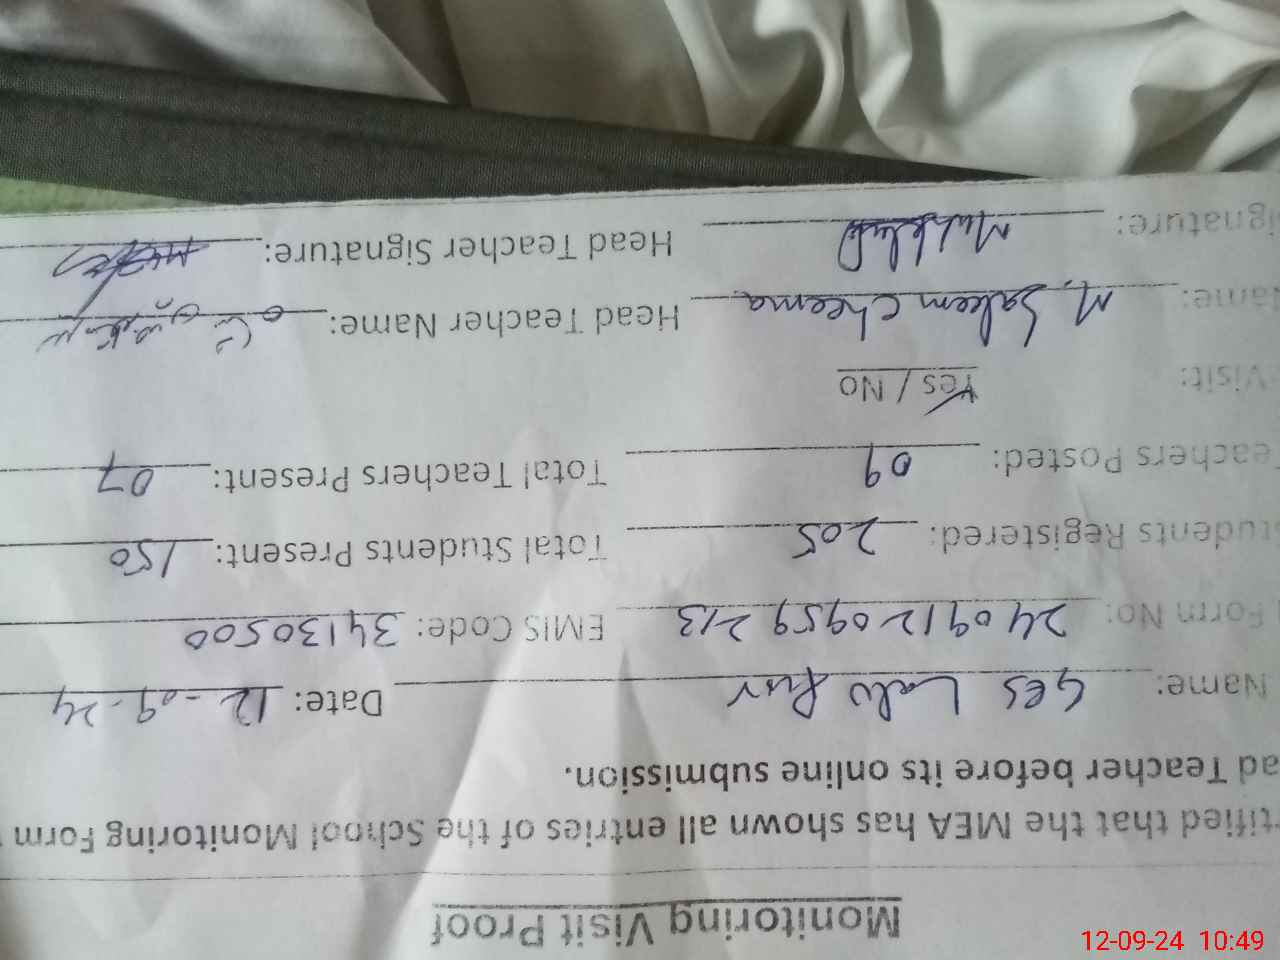 Monitoring Visit Proof
rtified that the MEA has shown all entries of the School Monitoring Form
ad Teacher before its online submission.
Name: GES Lalu Pur Date: 12-09-24
Form No: 240912 0959 213 EMIS Code: 34130500
tudents Registered: 205 Total Students Present: 150
eachers Posted: 09 Total Teachers Present: 07
Visit: Yes / No
ame: M. Saleem Cheema Head Teacher Name:
ignature: Head Teacher Signature:
12-09-24 10:49